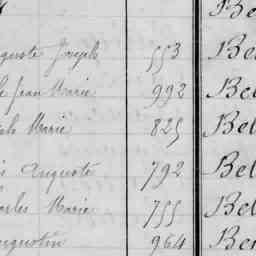 Be
Auguste Joseph 553
Jean Marie 992 Bel
Marie 825 Bel
Auguste 792 Bel
Charles Marie 755 Bel
Augustin 964 Ber